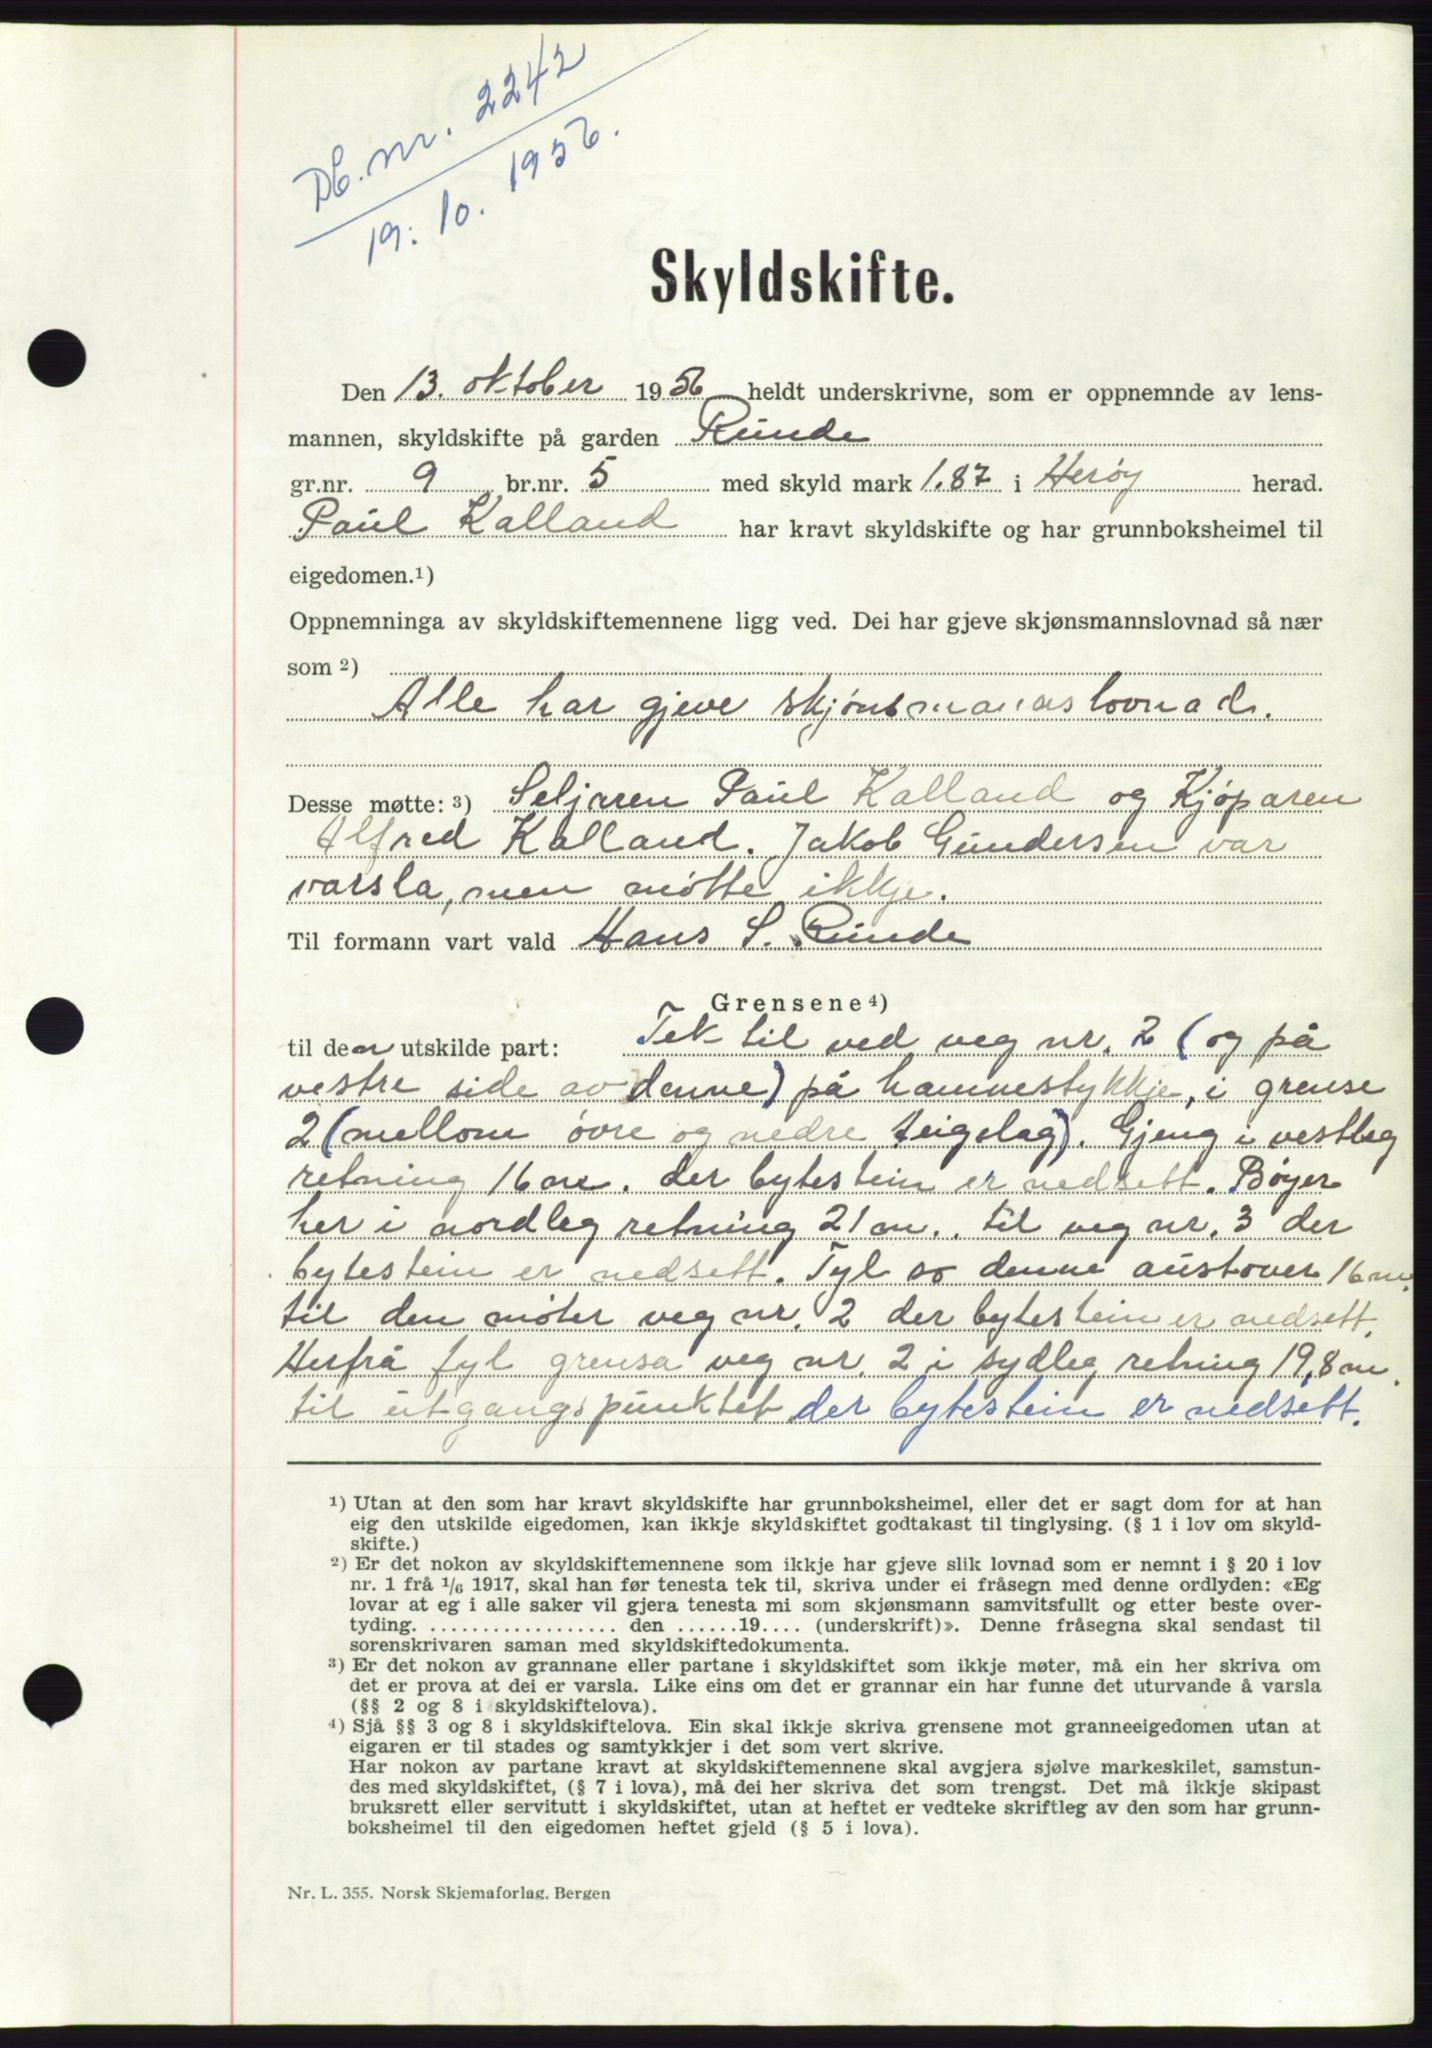 Db. nr. 2242
19. 10. 1956.
Skyldskifte.
Den 13. oktober 1956 heldt underskrivne, som er oppnemnde av lens-
mannen, skyldskifte på garden Runde
gr.nr. 9 br.nr. 5 med skyld mark 1.87 i Herøy herad.
Paul Kalland har kravt skyldskifte og har grunnboksheimel til
eigedomen.¹)
Oppnemninga av skyldskiftemennene ligg ved. Dei har gjeve skjønsmannslovnad så nær
som ²)
Alle har gjeve skjønsmannslovnad.
Desse møtte: ³) Seljaren Paul Kalland og Kjøparen
Alfred Kalland. Jakob Gundersen var
varsla, men møtte ikkje.
Til formann vart vald Hans S. Runde
Grensene ⁴)
til den utskilde part: Tek til ved veg nr. 2 (og på
vestre side av denne) på hamnestykkje, i grense
2 (mellom øvre og nedre teigelag). Gjeng i vestleg
retning 16 m. der bytestein er nedsett. Bøyer
her i nordleg retning 21 m.. til veg nr. 3 der
bytestein er nedsett. Fyl so denne austover 16 m.
til den møter veg nr. 2 der bytestein er nedsett.
Herfrå fyl grensa veg nr. 2 i sydleg retning 19,8 m.
til utgangspunktet der bytestein er nedsett.
¹) Utan at den som har kravt skyldskifte har grunnboksheimel, eller det er sagt dom for at han
eig den utskilde eigedomen, kan ikkje skyldskiftet godtakast til tinglysing. (§ 1 i lov om skyld-
skifte.)
²) Er det nokon av skyldskiftemennene som ikkje har gjeve slik lovnad som er nemnt i § 20 i lov
nr. 1 frå 1/6 1917, skal han før tenesta tek til, skriva under ei fråsegn med denne ordlyden: «Eg
lovar at eg i alle saker vil gjera tenesta mi som skjønsmann samvitsfullt og etter beste over-
tyding. .................. den ......19.... (underskrift)». Denne fråsegna skal sendast til
sorenskrivaren saman med skyldskiftedokumenta.
³) Er det nokon av grannane eller partane i skyldskiftet som ikkje møter, må ein her skriva om
det er prova at dei er varsla. Like eins om det er grannar ein har funne det uturvande å varsla
(§§ 2 og 8 i skyldskiftelova).
⁴) Sjå §§ 3 og 8 i skyldskiftelova. Ein skal ikkje skriva grensene mot granneeigedomen utan at
eigaren er til stades og samtykkjer i det som vert skrive.
Har nokon av partane kravt at skyldskiftemennene skal avgjera sjølve markeskilet, samstun-
des med skyldskiftet, (§ 7 i lova), må dei her skriva det som trengst. Det må ikkje skipast
bruksrett eller servitutt i skyldskiftet, utan at heftet er vedteke skriftleg av den som har grunn-
boksheimel til den eigedomen heftet gjeld (§ 5 i lova).
Nr. L. 355. Norsk Skjemaforlag. Bergen